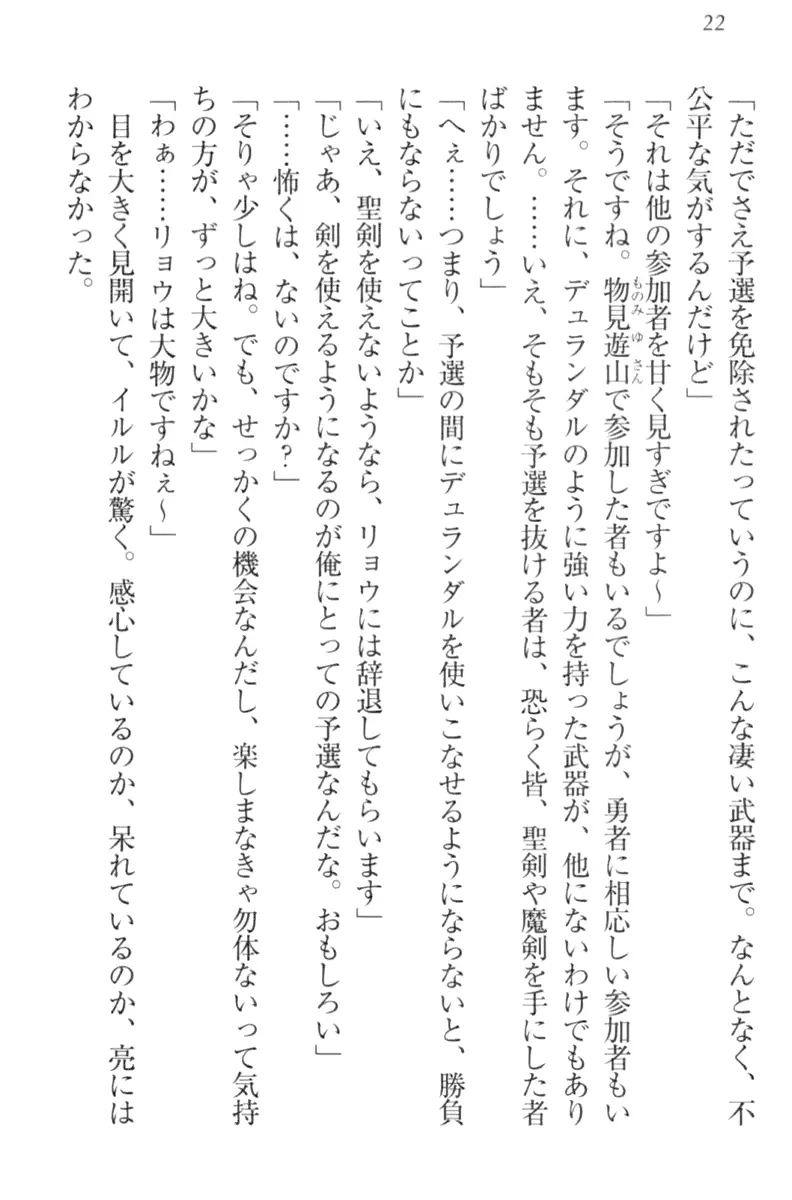 22
「ただでさえ予選を免除されたっていうのに、こんな凄い武器まで。なんとなく、不
公平な気がするんだけど」
「それは他の参加者を甘く見すぎですよ～」
「そうですね。物見遊山で参加した者もいるでしょうが、勇者に相応しい参加者もい
ものみゆさん
ます。それに、デュランダルのように強い力を持った武器が、他にないわけでもあり
ません。……いえ、そもそも予選を抜ける者は、恐らく皆、聖剣や魔剣を手にした者
ばかりでしょう」
「へぇ……つまり、予選の間にデュランダルを使いこなせるようにならないと、勝負
にもならないってことか」
「いえ、聖剣を使えないようなら、リョウには辞退してもらいます」
「じゃあ、剣を使えるようになるのが俺にとっての予選なんだな。おもしろい」
「……怖くは、ないのですか？」
「そりゃ少しはね。でも、せっかくの機会なんだし、楽しまなきゃ勿体ないって気持
ちの方が、ずっと大きいかな」
「わぁ……リョウは大物ですねぇ～」
目を大きく見開いて、イルルが驚く。感心しているのか、呆れているのか、亮には
わからなかった。